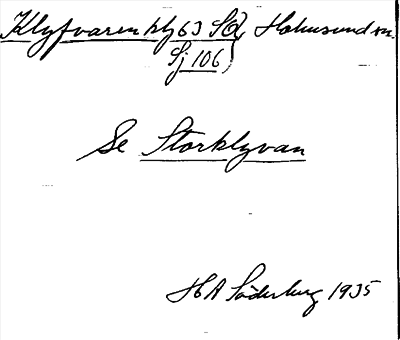 Klyfvaren klj 63 SO, Holmsund sn.
Sj 106)
Se Storklyvan
H A Söderberg 1935